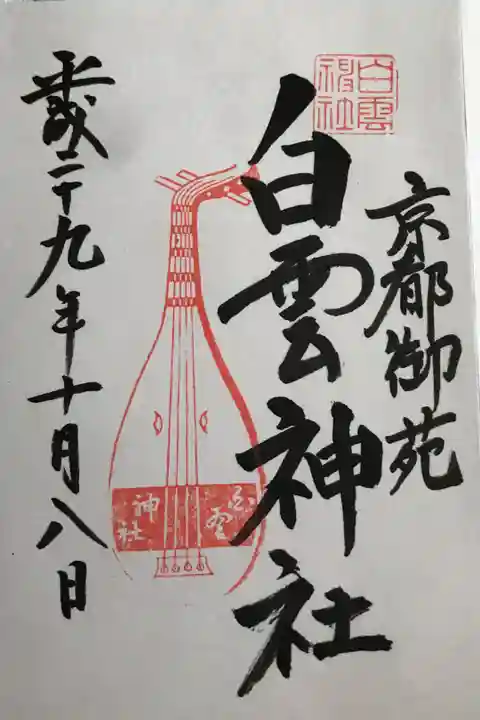 京都御苑
白雲神社
白雲
神社
白雲
神社
平成二十九年十月八日